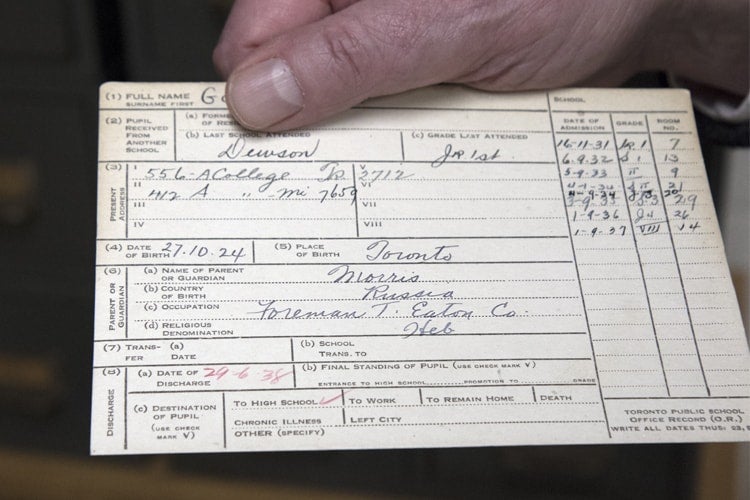 (1) FULL NAME
SURNAME FIRST
SCHOOL
(2) PUPIL RECEIVED FROM ANOTHER SCHOOL
(a) FORME
OF RES
(b) LAST SCHOOL ATTENDED
Dewson
(c) GRADE LAST ATTENDED
Jr 1st.
DATE OF ADMISSION GRADE ROOM NO.
16-11-31 Jr 1 7
6-9-32 S 1 13
5-9-33 II 9
1-9-36 26
1-9-37 VIII 14
(3) PRESENT ADDRESS
I 556-A College Tr. V 2712
II 412 A " - Mi 7659 VI
III VII
IV VIII
(4) DATE OF BIRTH 27.10.24 (5) PLACE OF BIRTH Toronto
(6) PARENT OR GUARDIAN
(a) NAME OF PARENT OR GUARDIAN Morris
(b) COUNTRY OF BIRTH Russia
(c) OCCUPATION Foreman T. Eaton Co.
(d) RELIGIOUS DENOMINATION Heb
(7) TRANSFER (a) DATE (b) SCHOOL TRANS. TO
(8) DISCHARGE
(a) DATE OF DISCHARGE 29-6-38
(b) FINAL STANDING OF PUPIL (USE CHECK MARK V)
ENTRANCE TO HIGH SCHOOL PROMOTION TO GRADE
(c) DESTINATION OF PUPIL (USE CHECK MARK V)
TO HIGH SCHOOL ✓ TO WORK TO REMAIN HOME DEATH
CHRONIC ILLNESS LEFT CITY
OTHER (SPECIFY)
TORONTO PUBLIC SCHOOL
OFFICE RECORD (O.R.)
WRITE ALL DATES THUS: 23,